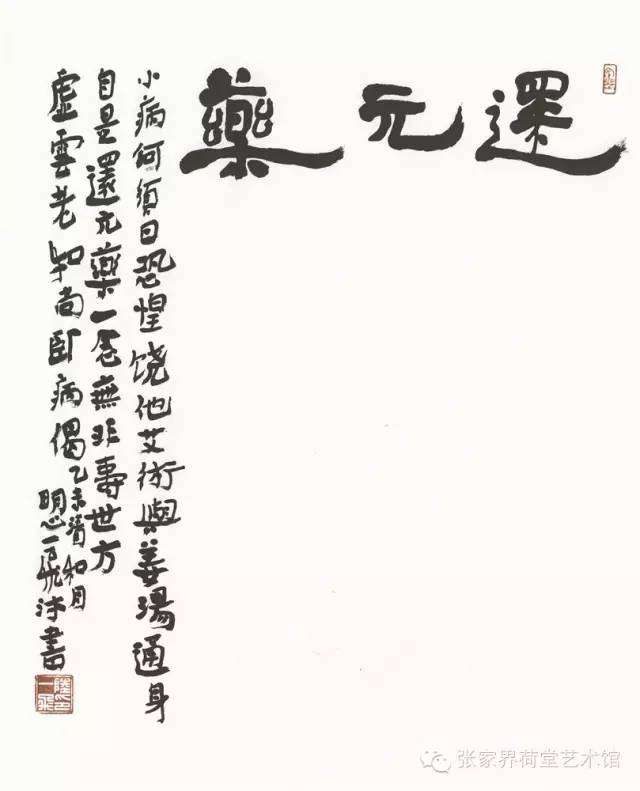 還元藥
小病何須日恐惶饶他艾術與姜湯通身
自是還元藥一念無非壽世方
虛雲老和尚臥病偈乙未清和月
明心一飛沐書
张家界荷堂艺术馆